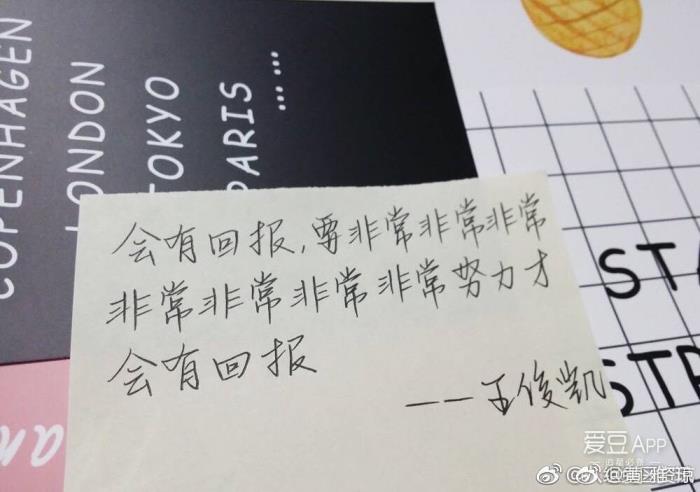 COPENHAGEN
LONDON
TOKYO
PARIS
......
会有回报,要非常非常非常
非常非常非常非常努力才
会有回报
——王俊凯
STA
STR
an
爱豆APP
追星必备